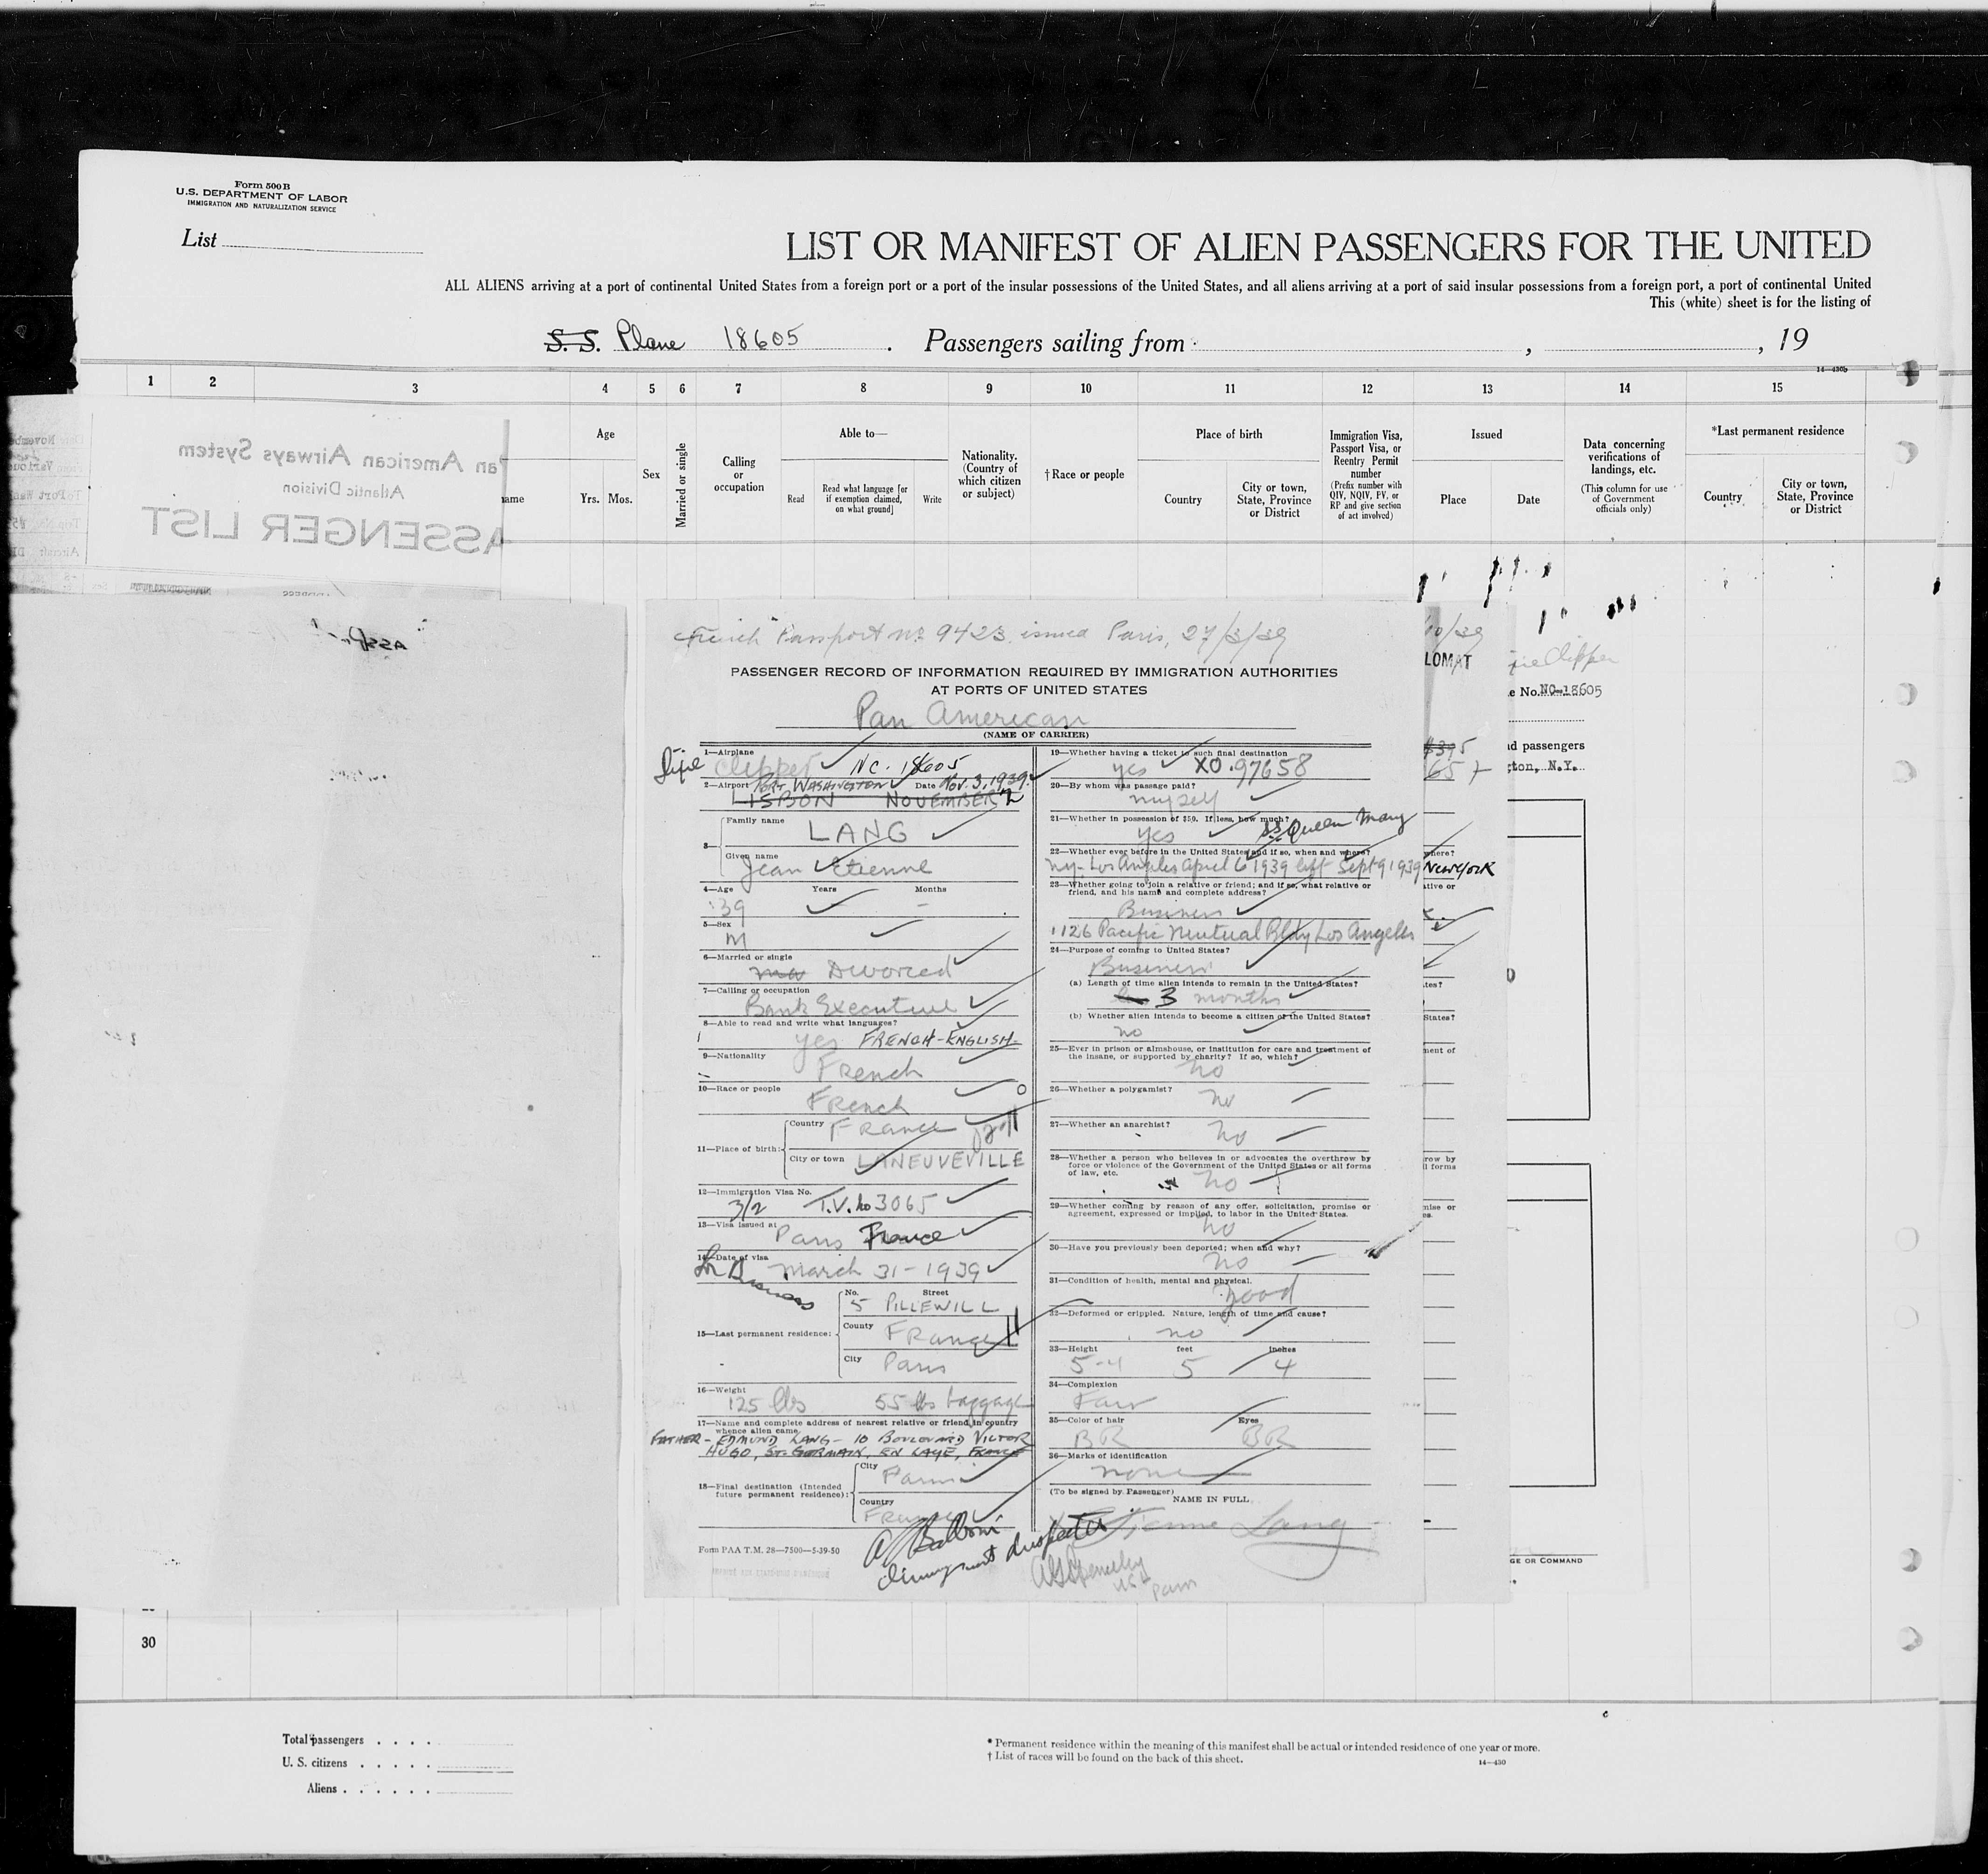 Form 500 B
U.S. DEPARTMENT OF LABOR
IMMIGRATION AND NATURALIZATION SERVICE
List
LIST OR MANIFEST OF ALIEN PASSENGERS FOR THE UNITED
ALL ALIENS arriving at a port of continental United States from a foreign port or a port of the insular possessions of the United States, and all aliens arriving at a port of said insular possessions from a foreign port, a port of continental United
This (white) sheet is for the listing of
S. S. Plane 18605 . Passengers sailing from , , 19
14—430b
1 2 3 4 5 6 7 8 9 10 11 12 13 14 15
Pan American Airways System
Atlantic Division
PASSENGER LIST
Age
Yrs. Mos.
Sex
Married or single
Calling
or
occupation
Able to—
Read
Read what language [or
if exemption claimed,
on what ground]
Write
Nationality.
(Country of
which citizen
or subject)
† Race or people
Place of birth
Country
City or town,
State, Province
or District
Immigration Visa,
Passport Visa, or
Reentry Permit
number
(Prefix number with
QIV, NQIV, PV, or
RP and give section
of act involved)
Issued
Place
Date
Data concerning
verifications of
landings, etc.
(This column for use
of Government
officials only)
*Last permanent residence
Country
City or town,
State, Province
or District
French Passport No. 9423 issued Paris, 27/3/39
PASSENGER RECORD OF INFORMATION REQUIRED BY IMMIGRATION AUTHORITIES
AT PORTS OF UNITED STATES
Pan American
(NAME OF CARRIER)
1—Airplane
Clipper NC. 18605
2—Airport PORT WASHINGTON Date Nov. 3, 1939
LISBON NOVEMBER 2
3—
Family name
LANG
Given name
Jean Etienne
4—Age Years Months
39 –
5—Sex
M
6—Married or single
Divorced
7—Calling or occupation
Bank Executive
8—Able to read and write what languages?
yes FRENCH-ENGLISH-
9—Nationality
French
10—Race or people
French
11—Place of birth:
Country France
City or town LANEUVEVILLE
12—Immigration Visa No.
3/2 T.V. No 3065
13—Visa issued at
Paris France
14—Date of visa
March 31-1939
15—Last permanent residence:
No. Street
5 PILLEWILL
County France
City Paris
16—Weight
125 lbs 55 lbs baggage
17—Name and complete address of nearest relative or friend in country
whence alien came.
FATHER - EDMUND LANG - 10 BOULEVARD VICTOR
HUGO, ST. GERMAIN, EN LAYE, FRANCE
18—Final destination (Intended
future permanent residence):
City Paris
Country
France
Form PAA T.M. 28—7500—5-39-50
Immigrant Inspector
19—Whether having a ticket to such final destination
yes XO.97658
20—By whom was passage paid?
myself
21—Whether in possession of $50. If less, how much?
yes SS Queen Mary
22—Whether ever before in the United States and if so, when and where?
NY- Los Angeles April 6 1939 left Sept 9 1939 New York
23—Whether going to join a relative or friend; and if so, what relative or
friend, and his name and complete address?
Business
1126 Pacific Mutual Bldg Los Angeles
24—Purpose of coming to United States?
Business
(a) Length of time alien intends to remain in the United States?
3 months
(b) Whether alien intends to become a citizen of the United States?
no
25—Ever in prison or almshouse, or institution for care and treatment of
the insane, or supported by charity? If so, which?
no
26—Whether a polygamist?
no
27—Whether an anarchist?
no
28—Whether a person who believes in or advocates the overthrow by
force or violence of the Government of the United States or all forms
of law, etc.
no
29—Whether coming by reason of any offer, solicitation, promise or
agreement, expressed or implied, to labor in the United States.
no
30—Have you previously been deported; when and why?
no
31—Condition of health, mental and physical.
good
32—Deformed or crippled. Nature, length of time and cause?
no
33—Height feet inches
5-4 5 4
34—Complexion
Fair
35—Color of hair Eyes
BR BR
36—Marks of identification
none
(To be signed by Passenger)
NAME IN FULL
Etienne Lang
10/39
LOMAT
Clipper
e No. NC-18605
$395
d passengers
65
ton, N.Y.
GE OR COMMAND
30
Total passengers . . . .
U. S. citizens . . . . .
Aliens . . . . . .
* Permanent residence within the meaning of this manifest shall be actual or intended residence of one year or more.
† List of races will be found on the back of this sheet.
14—430